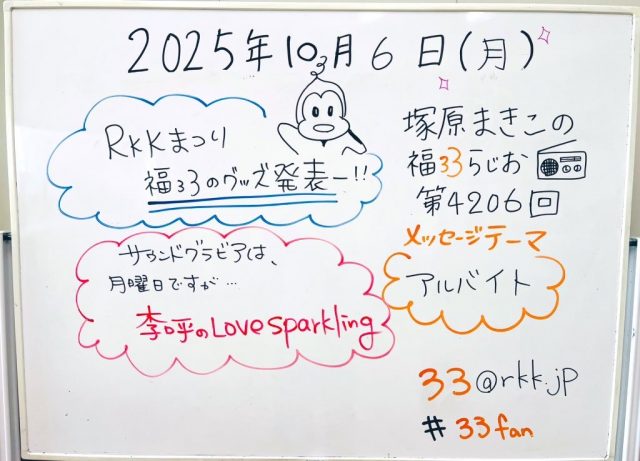 2025年10月6日(月)
RKKまつり
福33のグッズ発表ー!!
塚原まきこの
福33らじお
第4206回
メッセージテーマ
アルバイト
サウンドグラビアは、
月曜日ですが…
李呼のLove sparkling
33@rkk.jp
#33fan